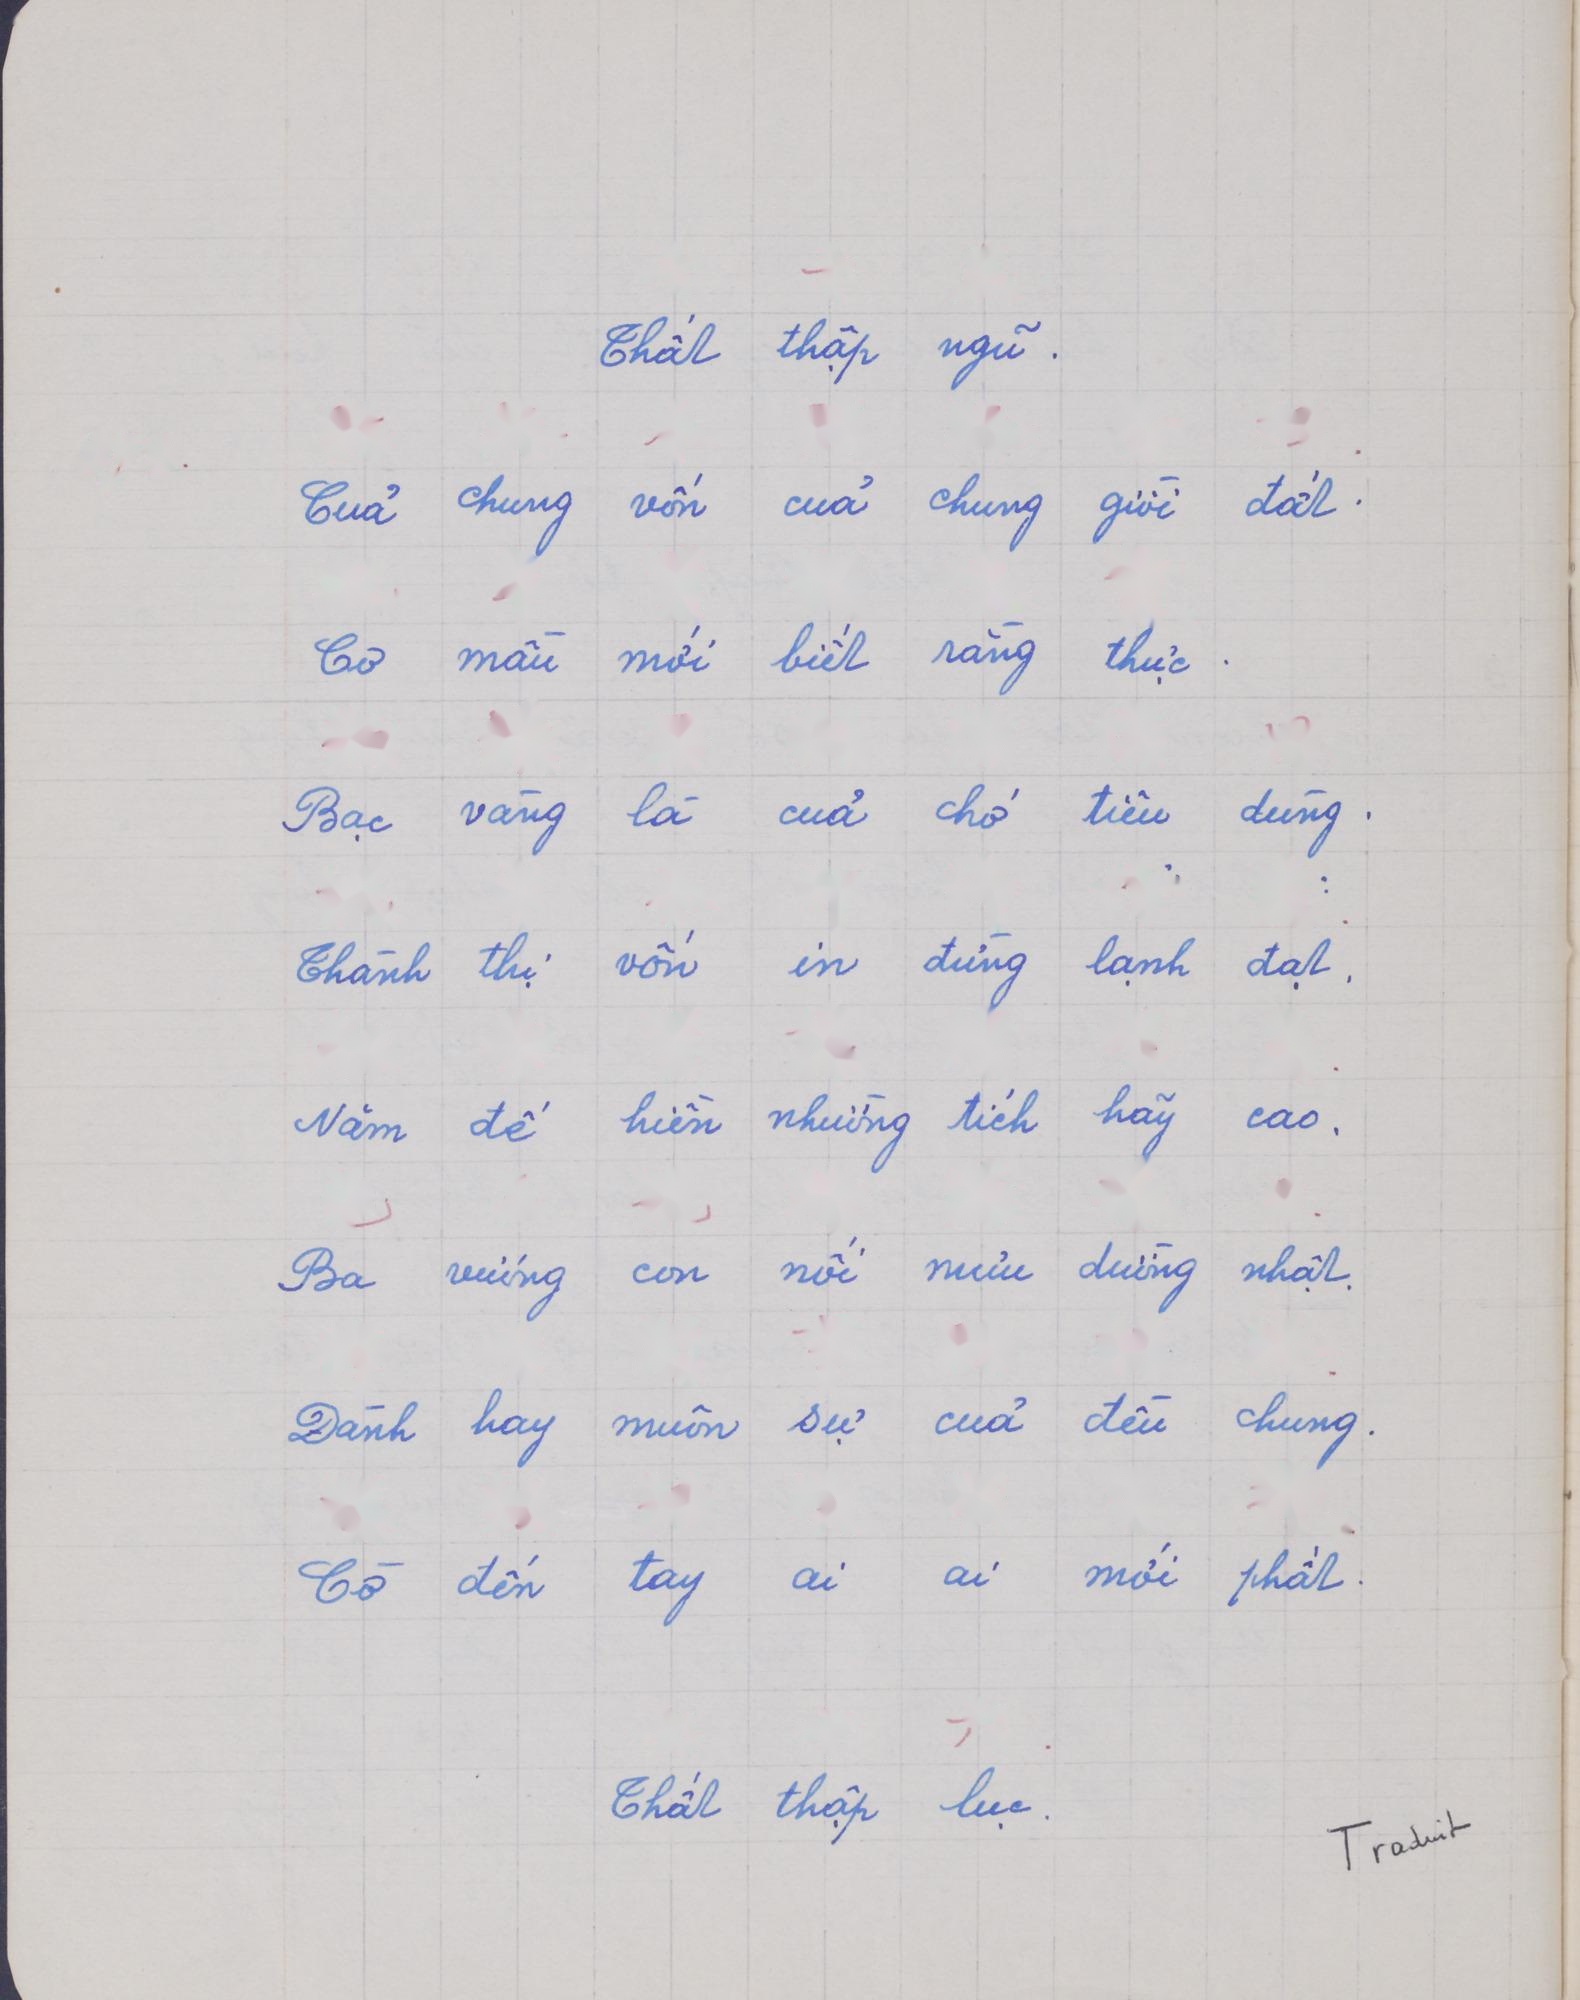 Thất thập ngũ.
Cuả chung vốn cuả chung giời đất.
Cơ mầu mới biết rằng thực.
Bạc vàng là cuả chớ tiêu dùng.
Thành thị vốn in đừng lạnh đạt.
Năm đế hiền nhường tích hãy cao.
Ba vương con nối mưu dường nhật.
Dành hay muôn sự cuả đều chung.
Cờ đến tay ai ai mới phất.
Thất thập lục.
Traduit